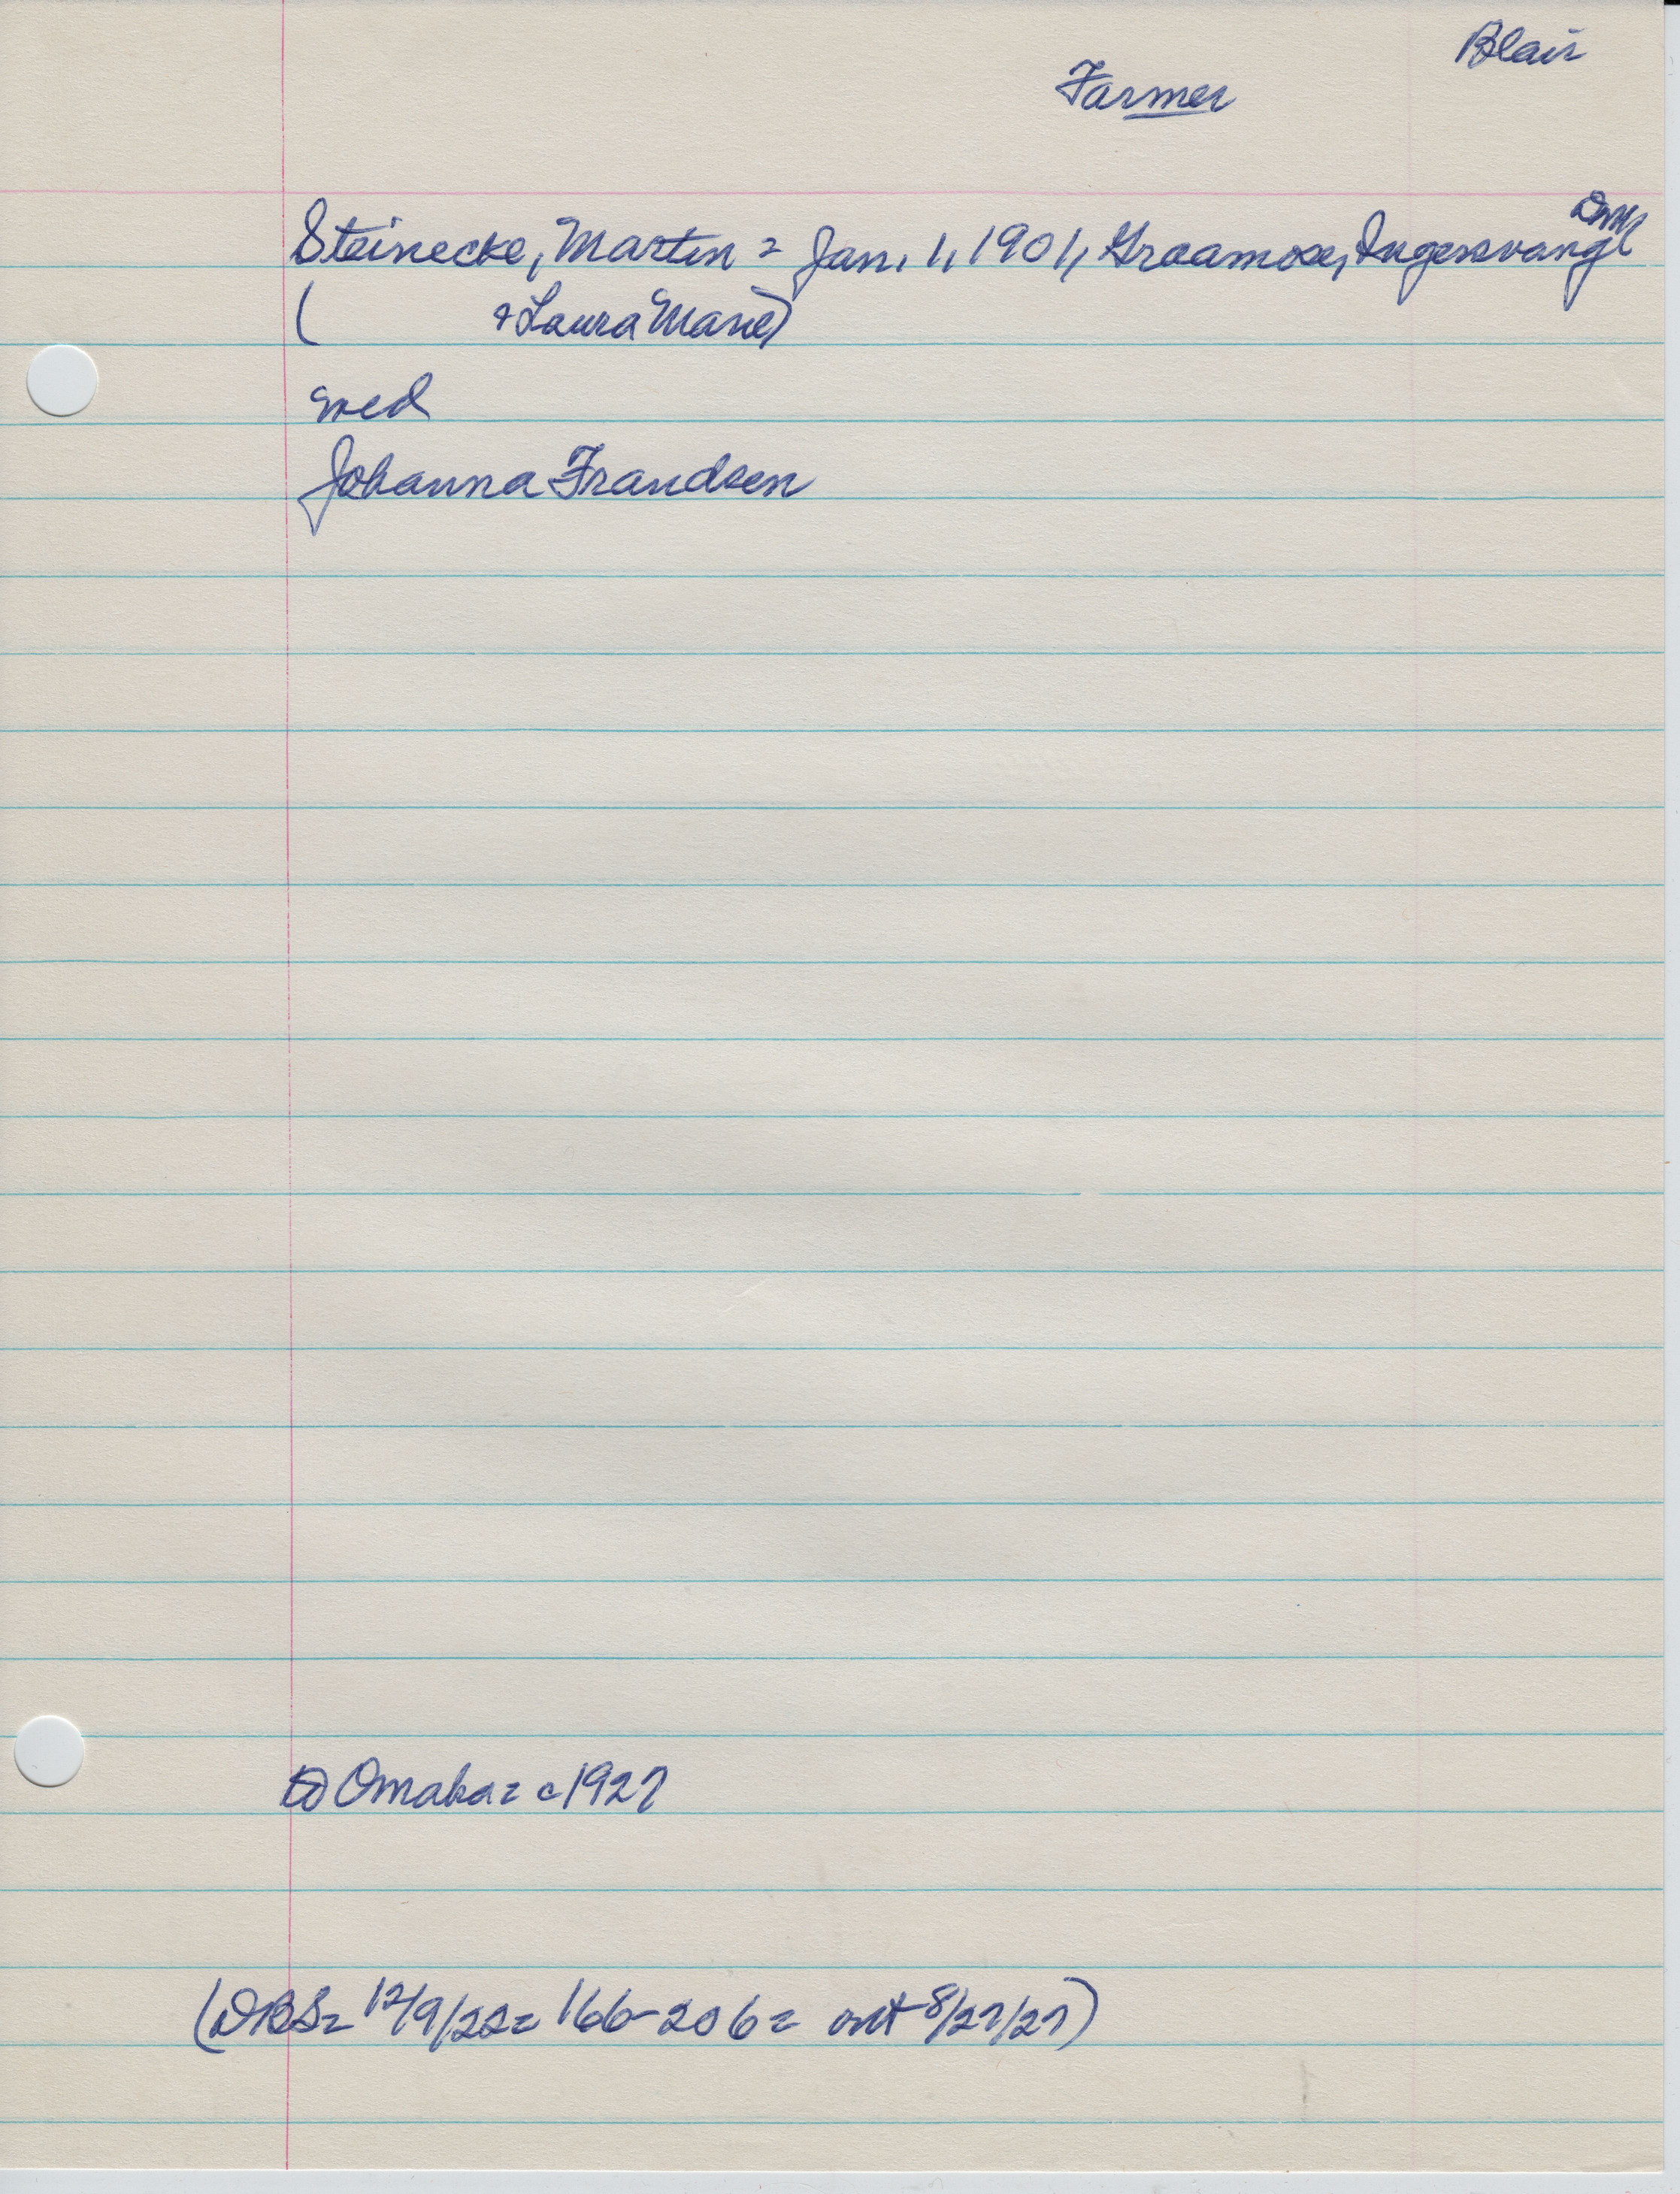 Blair
Farmer
Steinecke, Martin = Jan. 1, 1901, Graamose, Ingersvang Dmk
( + Laura Marie)
med
Johanna Frandsen
to Omaha = c 1927
(DBS = 12/9/22 = 166-206 = out 8/27/27)